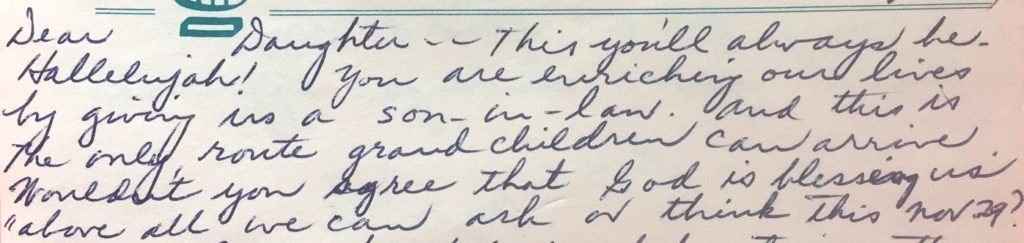 Dear Daughter -- This you'll always be.
Hallelujah! You are enriching our lives
by giving us a son-in-law. And this is
the only route grandchildren can arrive.
Wouldn't you agree that God is blessing us
"above all we can ask or think this Nov 29?